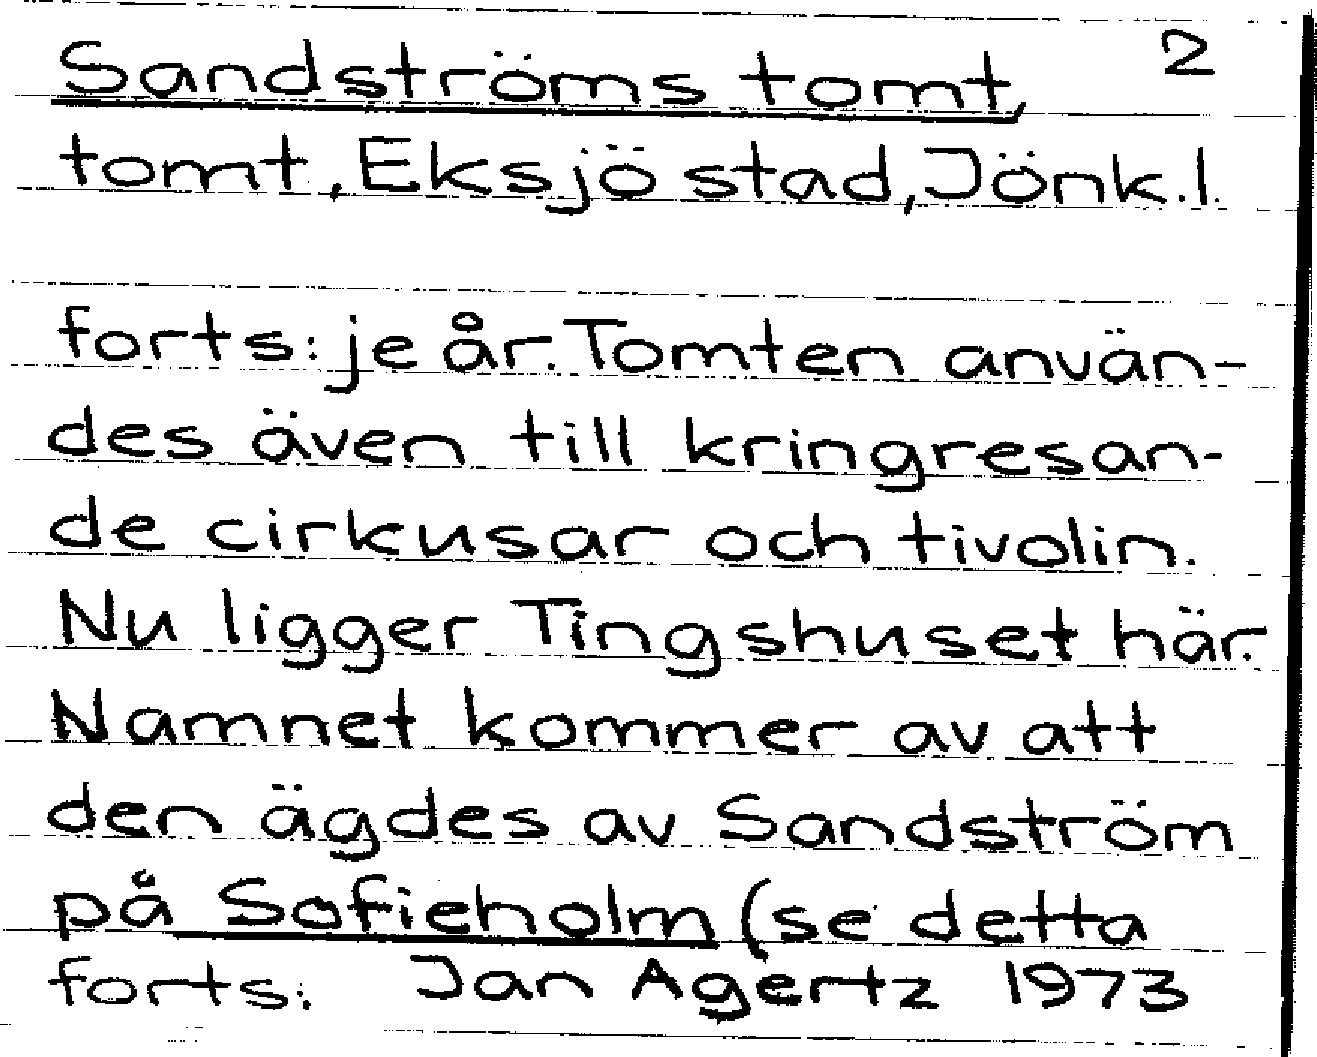 Sandströms tomt, 2
tomt, Eksjö stad, Jönk.l.
forts: je år. Tomten använ-
des även till kringresan-
de cirkusar och tivolin.
Nu ligger Tingshuset här.
Namnet kommer av att
den ägdes av Sandström
på Sofieholm (se detta
forts: Jan Agertz 1973